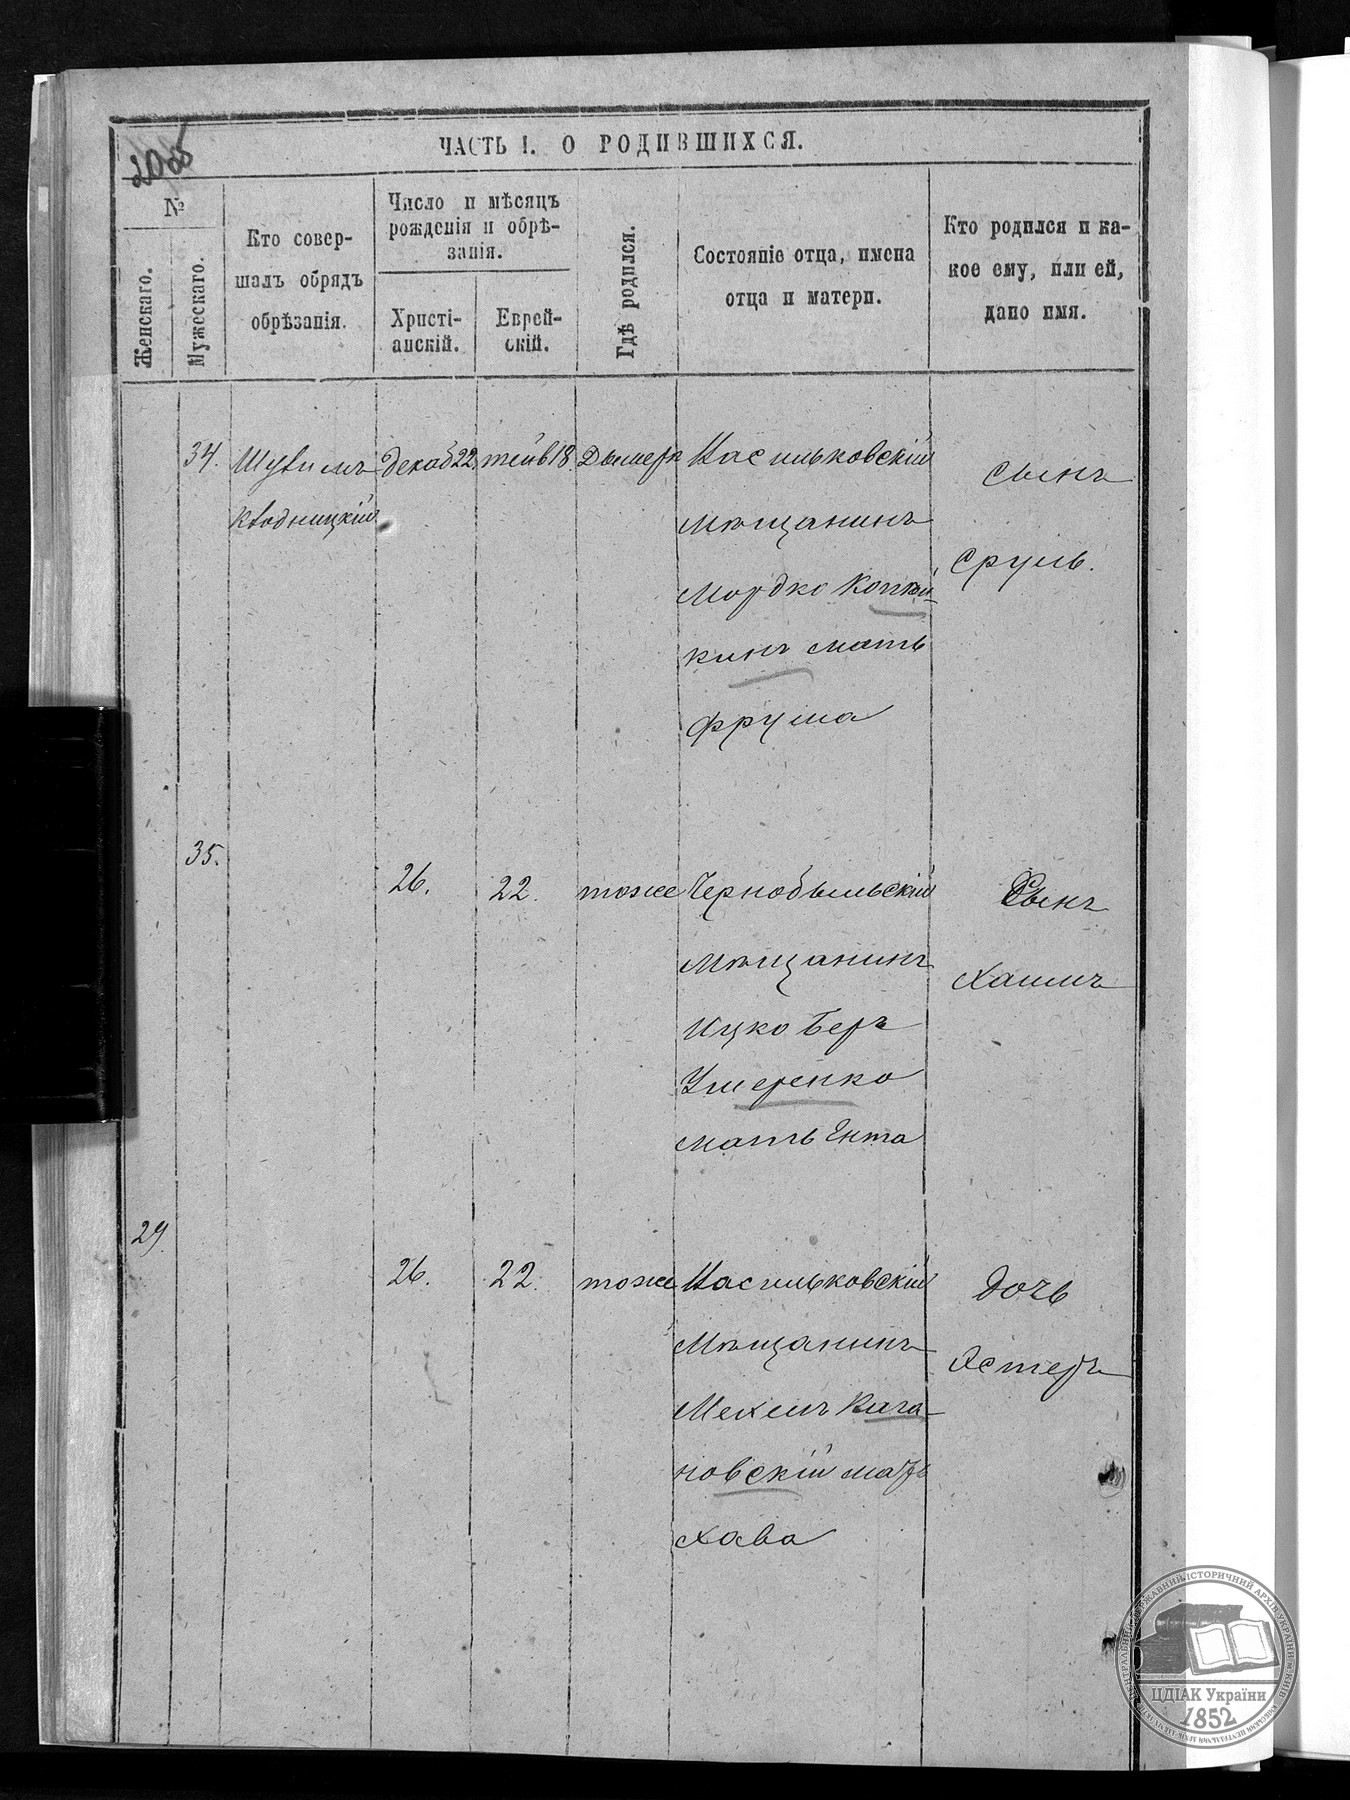 ЧАСТЬ I. О РОДИВШИХСЯ.
№
Женскаго.
Мужескаго.
Кто совер-
шалъ обрядъ
обрѣзанія.
Число и мѣсяцъ
рожденія и обрѣ-
занія.
Христі-
анскій.
Еврей-
скій.
Гдѣ родился.
Состояніе отца, имена
отца и матери.
Кто родился и ка-
кое ему, или ей,
дано имя.
34. декаб 22. тейв 18. Дымерк Васильковскій
Мѣщанинъ
Мордко
кинъ мать
Фрума
сынъ
Сруль.
35.
26. 22. тоже Чернобыльскій
Мѣщанинъ
Ицко Беръ
Умеренко
мать Ента
Сынъ
Хаимъ
29
26. 22. тоже Васильковскій
Мѣщанинъ
Мехель Кага-
новскій мать
Хава
дочь
Эстеръ
ЦДІАК України
1852